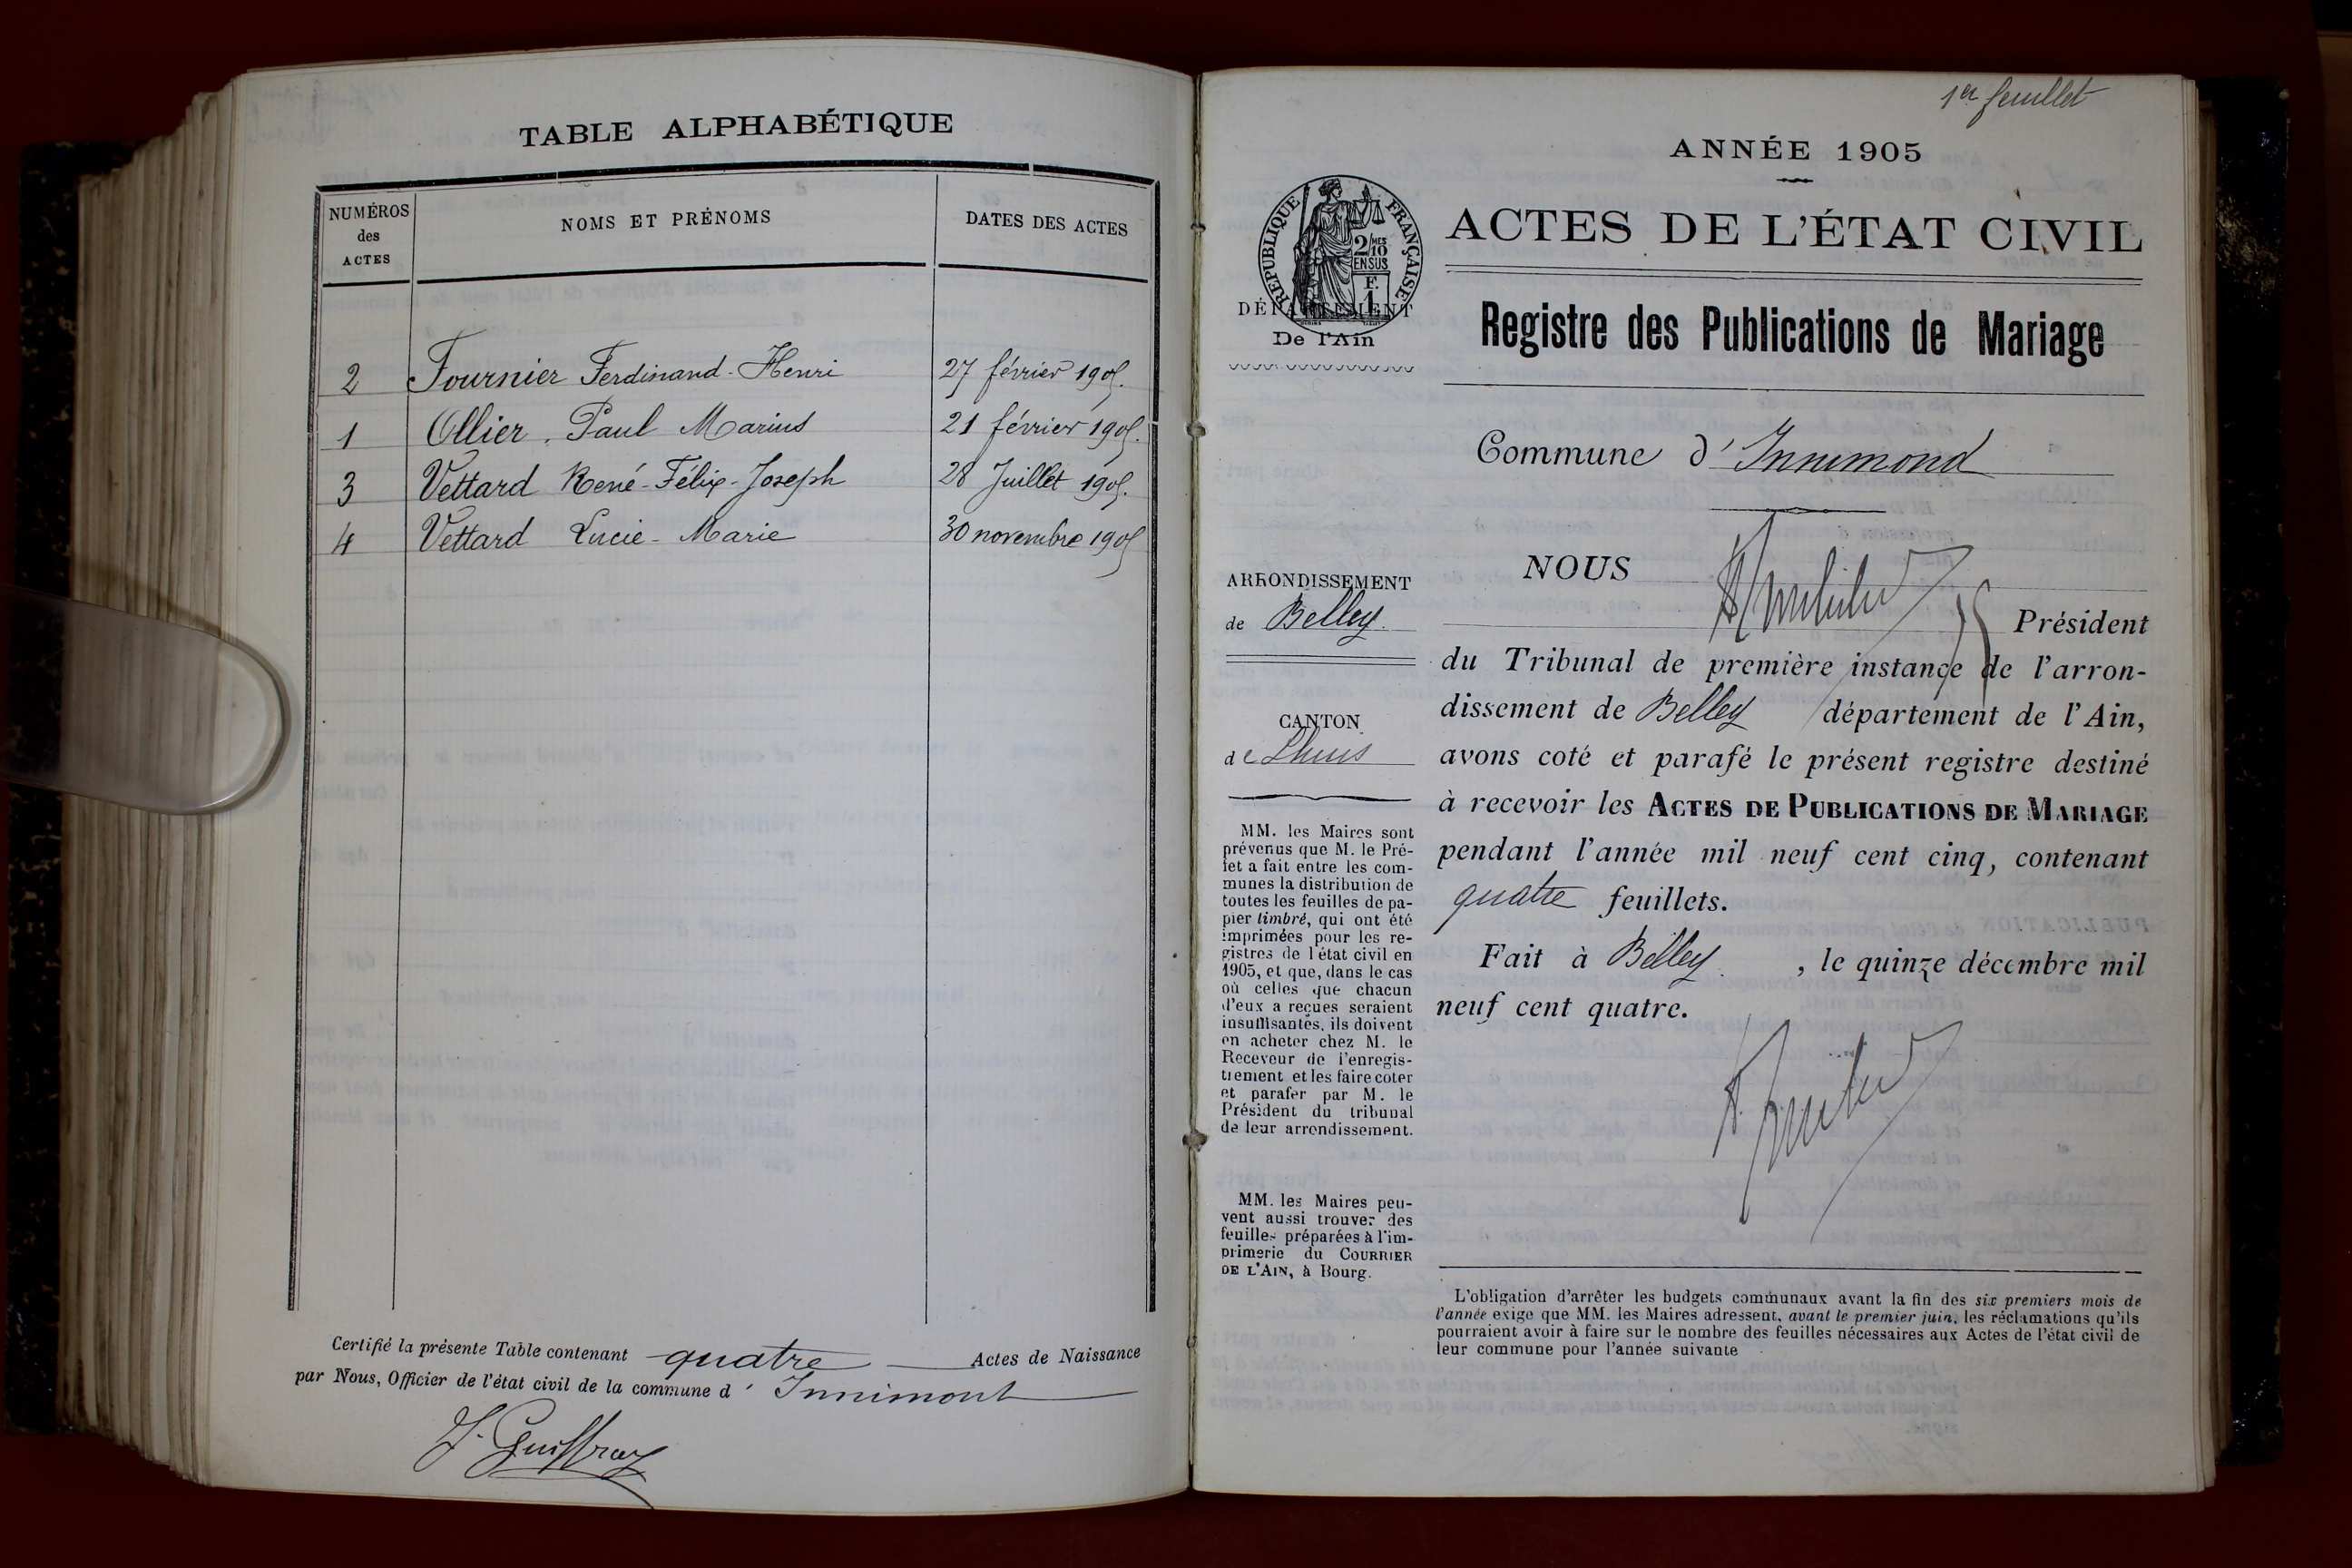 TABLE ALPHABÉTIQUE
NUMÉROS
des
ACTES
NOMS ET PRÉNOMS
DATES DES ACTES
2 Fournier Ferdinand-Henri 27 février 1905.
1 Ollier, Paul Marius 21 février 1905.
3 Vettard René-Félix-Joseph 28 Juillet 1905.
4 Vettard Lucie-Marie 30 novembre 1905
Certifié la présente Table contenant quatre Actes de Naissance
par Nous, Officier de l'état civil de la commune d' Innimont
J. Guiffray
1er feuillet
ANNÉE 1905
ACTES DE L'ÉTAT CIVIL
RÉPUBLIQUE FRANÇAISE
2/10MES
EN SUS
F.
1
DÉPARTEMENT
De l'Ain
Registre des Publications de Mariage
Commune d'Innimond
ARRONDISSEMENT
de Belley.
CANTON
de Lhuis
MM. les Maires sont
prévenus que M. le Pré-
fet a fait entre les com-
munes la distribution de
toutes les feuilles de pa-
pier timbré, qui ont été
imprimées pour les re-
gistres de l'état civil en
1905, et que, dans le cas
où celles que chacun
d'eux a reçues seraient
insuffisantes, ils doivent
en acheter chez M. le
Receveur de l'enregis-
trement et les faire coter
et parafer par M. le
Président du tribunal
de leur arrondissement.
MM. les Maires peu-
vent aussi trouver des
feuilles préparées à l'im-
primerie du COURRIER
DE L'AIN, à Bourg.
NOUS
Président
du Tribunal de première instance de l'arron-
dissement de Belley département de l'Ain,
avons coté et parafé le présent registre destiné
à recevoir les ACTES DE PUBLICATIONS DE MARIAGE
pendant l'année mil neuf cent cinq, contenant
quatre feuillets.
Fait à Belley, le quinze décembre mil
neuf cent quatre.
L'obligation d'arrêter les budgets communaux avant la fin des six premiers mois de
l'année exige que MM. les Maires adressent, avant le premier juin, les réclamations qu'ils
pourraient avoir à faire sur le nombre des feuilles nécessaires aux Actes de l'état civil de
leur commune pour l'année suivante